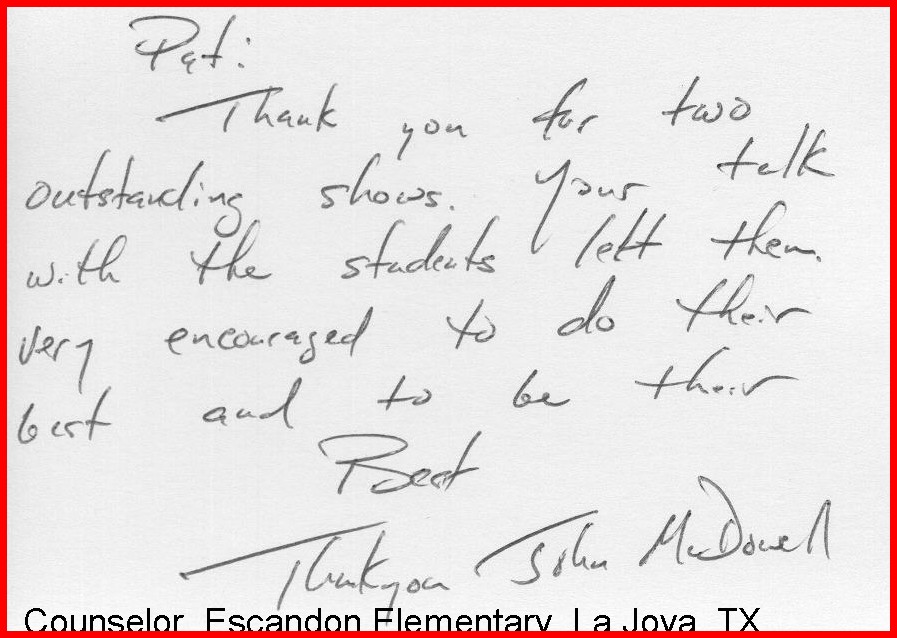 Pat:
Thank you for two
outstanding shows. Your talk
with the students left them
very encouraged to do their
best and to be their
Best
Thankyou John McDowell
Counselor, Escandon Elementary, La Joya, TX